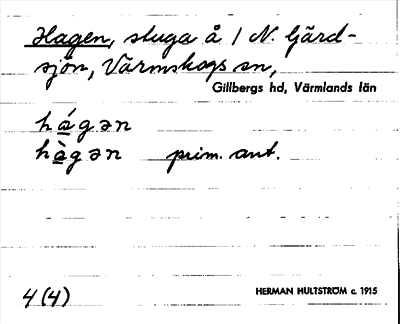 Hagen, stuga å 1 N. Gärd-
sjön, Värmskogs sn,
Gillbergs hd, Värmlands län
hágən
hàgən prim. ant.
4 (4)
HERMAN HULTSTRÖM c. 1915